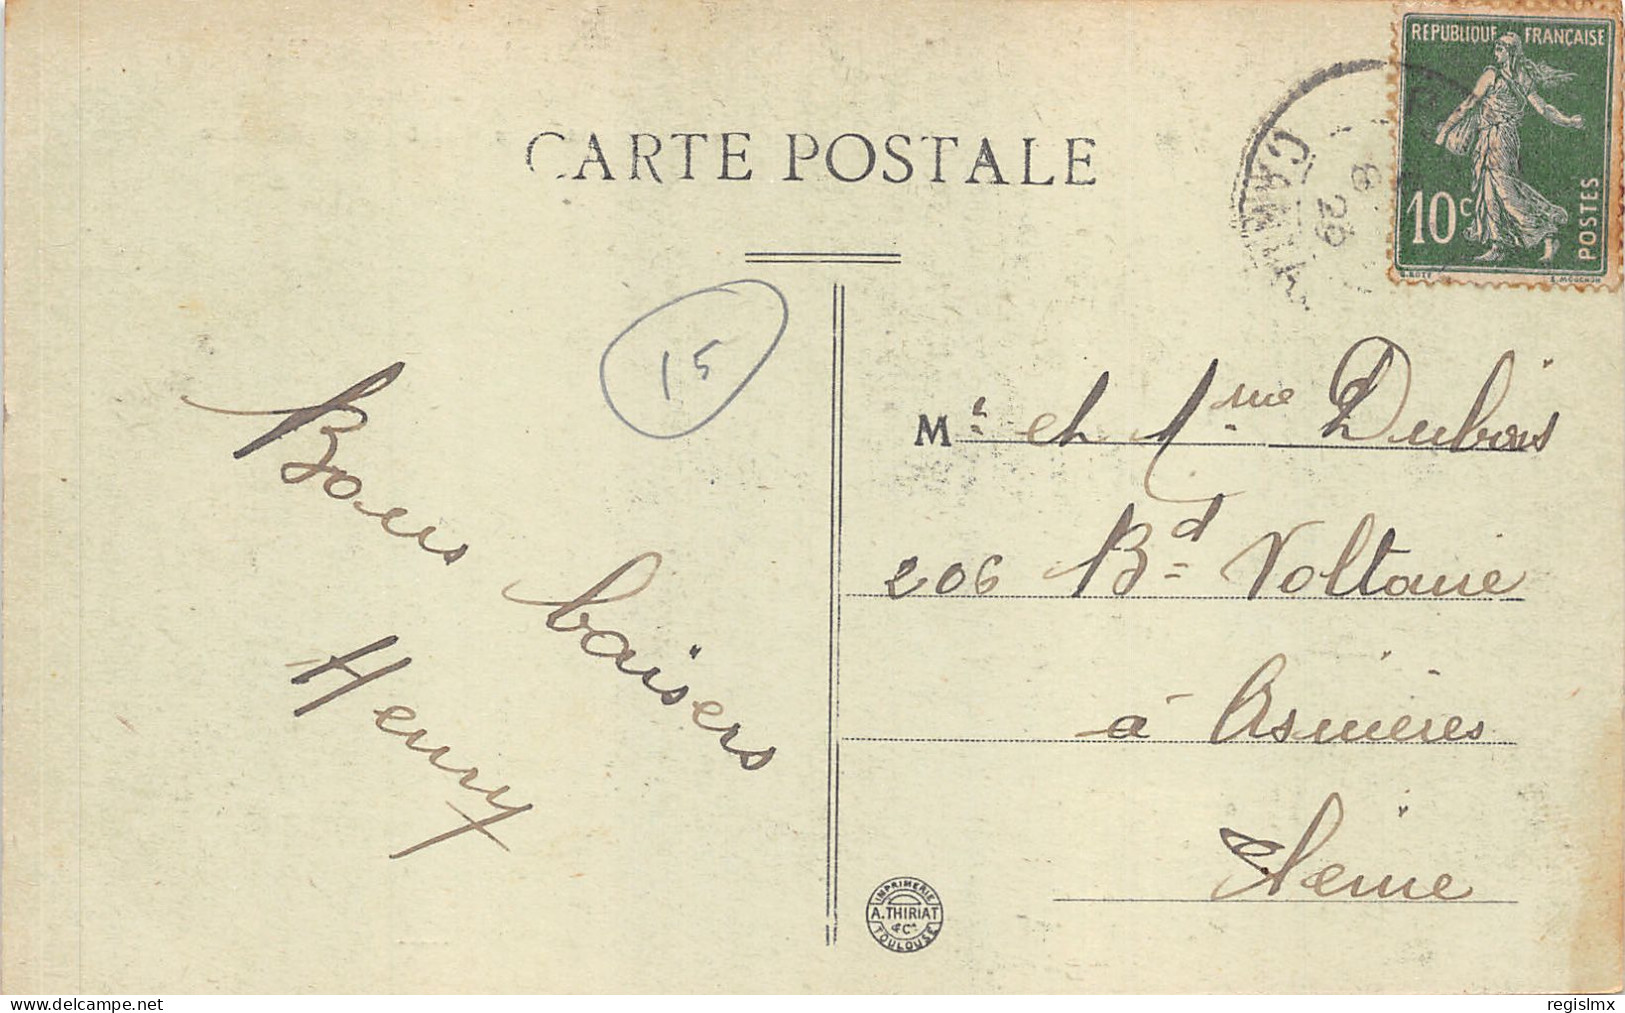 REPUBLIQUE FRANÇAISE
10c
POSTES
CARTE POSTALE
8
25
CANTAL
15
Mr et Mme Dubois
206 Bd Voltaire
à Asnières
Seine
Bons baisers
Henry
IMPRIMERIE
A. THIRIAT
& Cie
TOULOUSE
E. MOUCHON
www.delcampe.net
regislmx